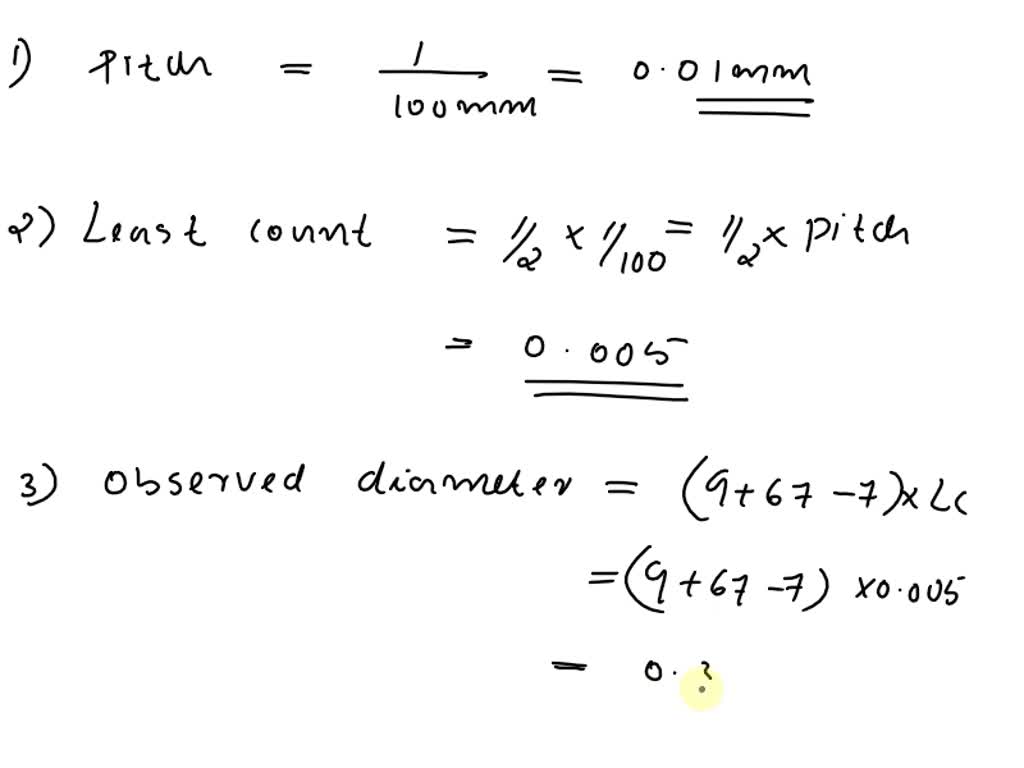 1) Pitch = 1/100mm = 0.01mm
2) Least count = 1/2 × 1/100 = 1/2 × pitch
= 0.005
3) Observed diameter = (9+67-7)×LC
= (9+67-7) ×0.005
= 0.3